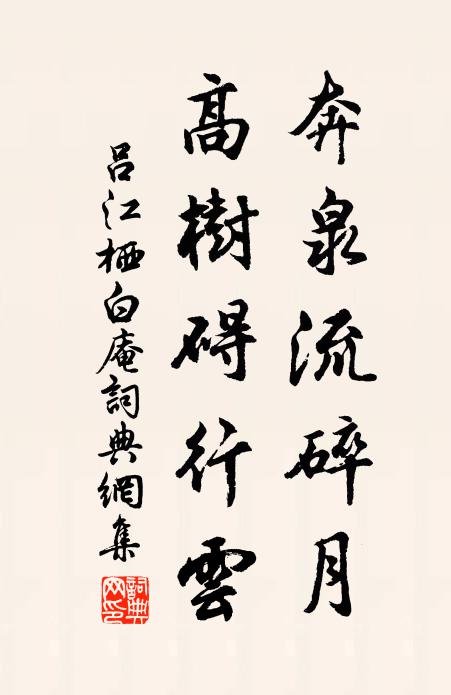 奔泉流碎月
高樹碍行雲
吕江栖白庵詞典網集
詞典網印